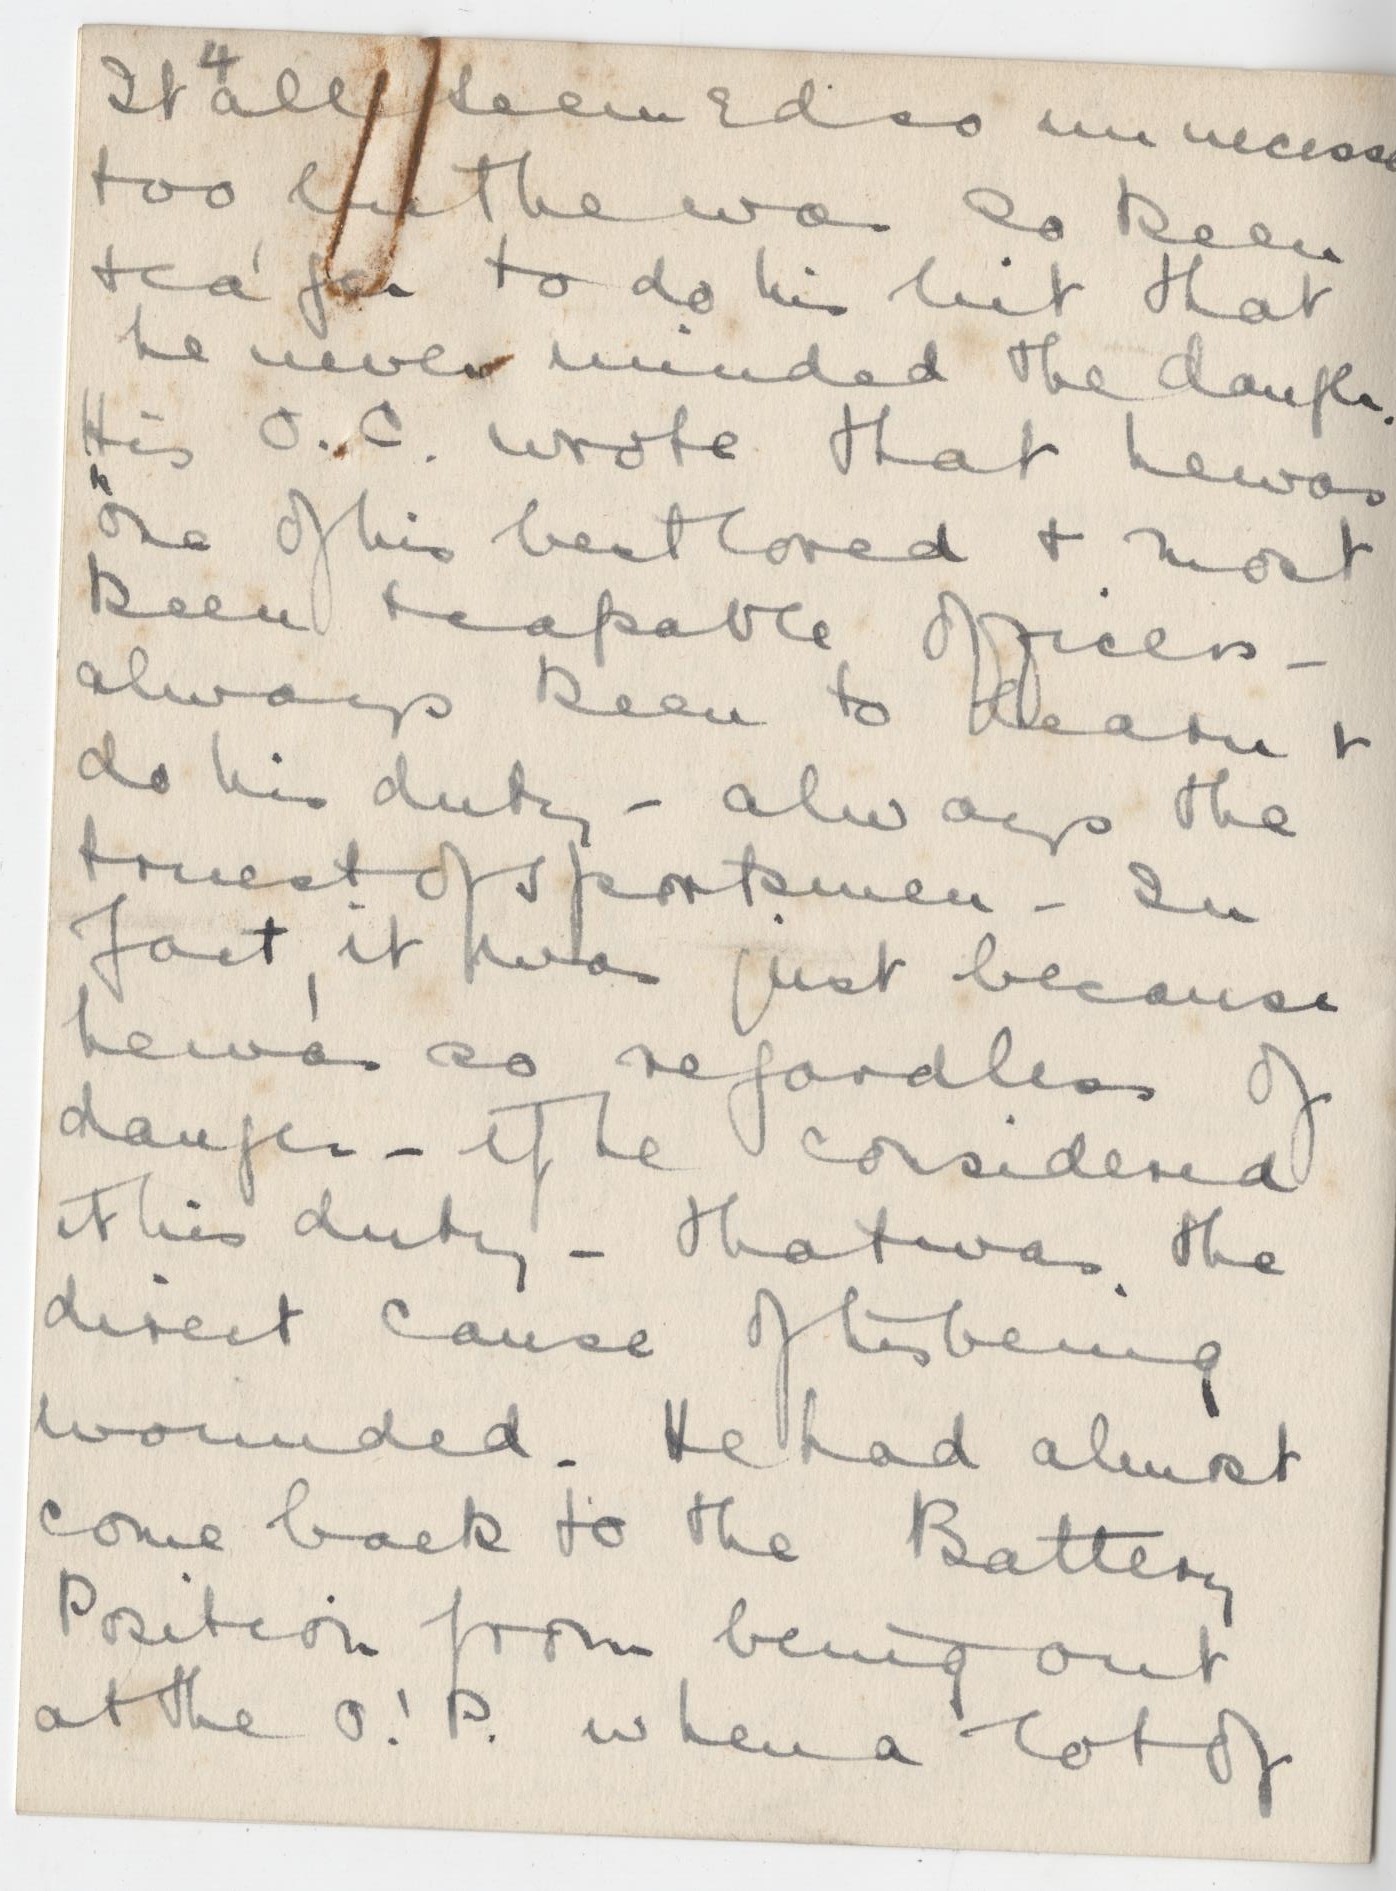 4
It all seemed so unnecess
too but he was so keen
+ eager to do his bit that
he never minded the danger.
His O.C. wrote that he was
"one of his best loved + most
keen + capable officers -
always keen to learn +
do his duty - always the
truest of sportsmen - In
fact, it was just because
he was so regardless of
danger - if he considered
it his duty - that was the
direct cause of his being
wounded. He had almost
come back to the Battery
Position from being out
at the O.P. when a lot of